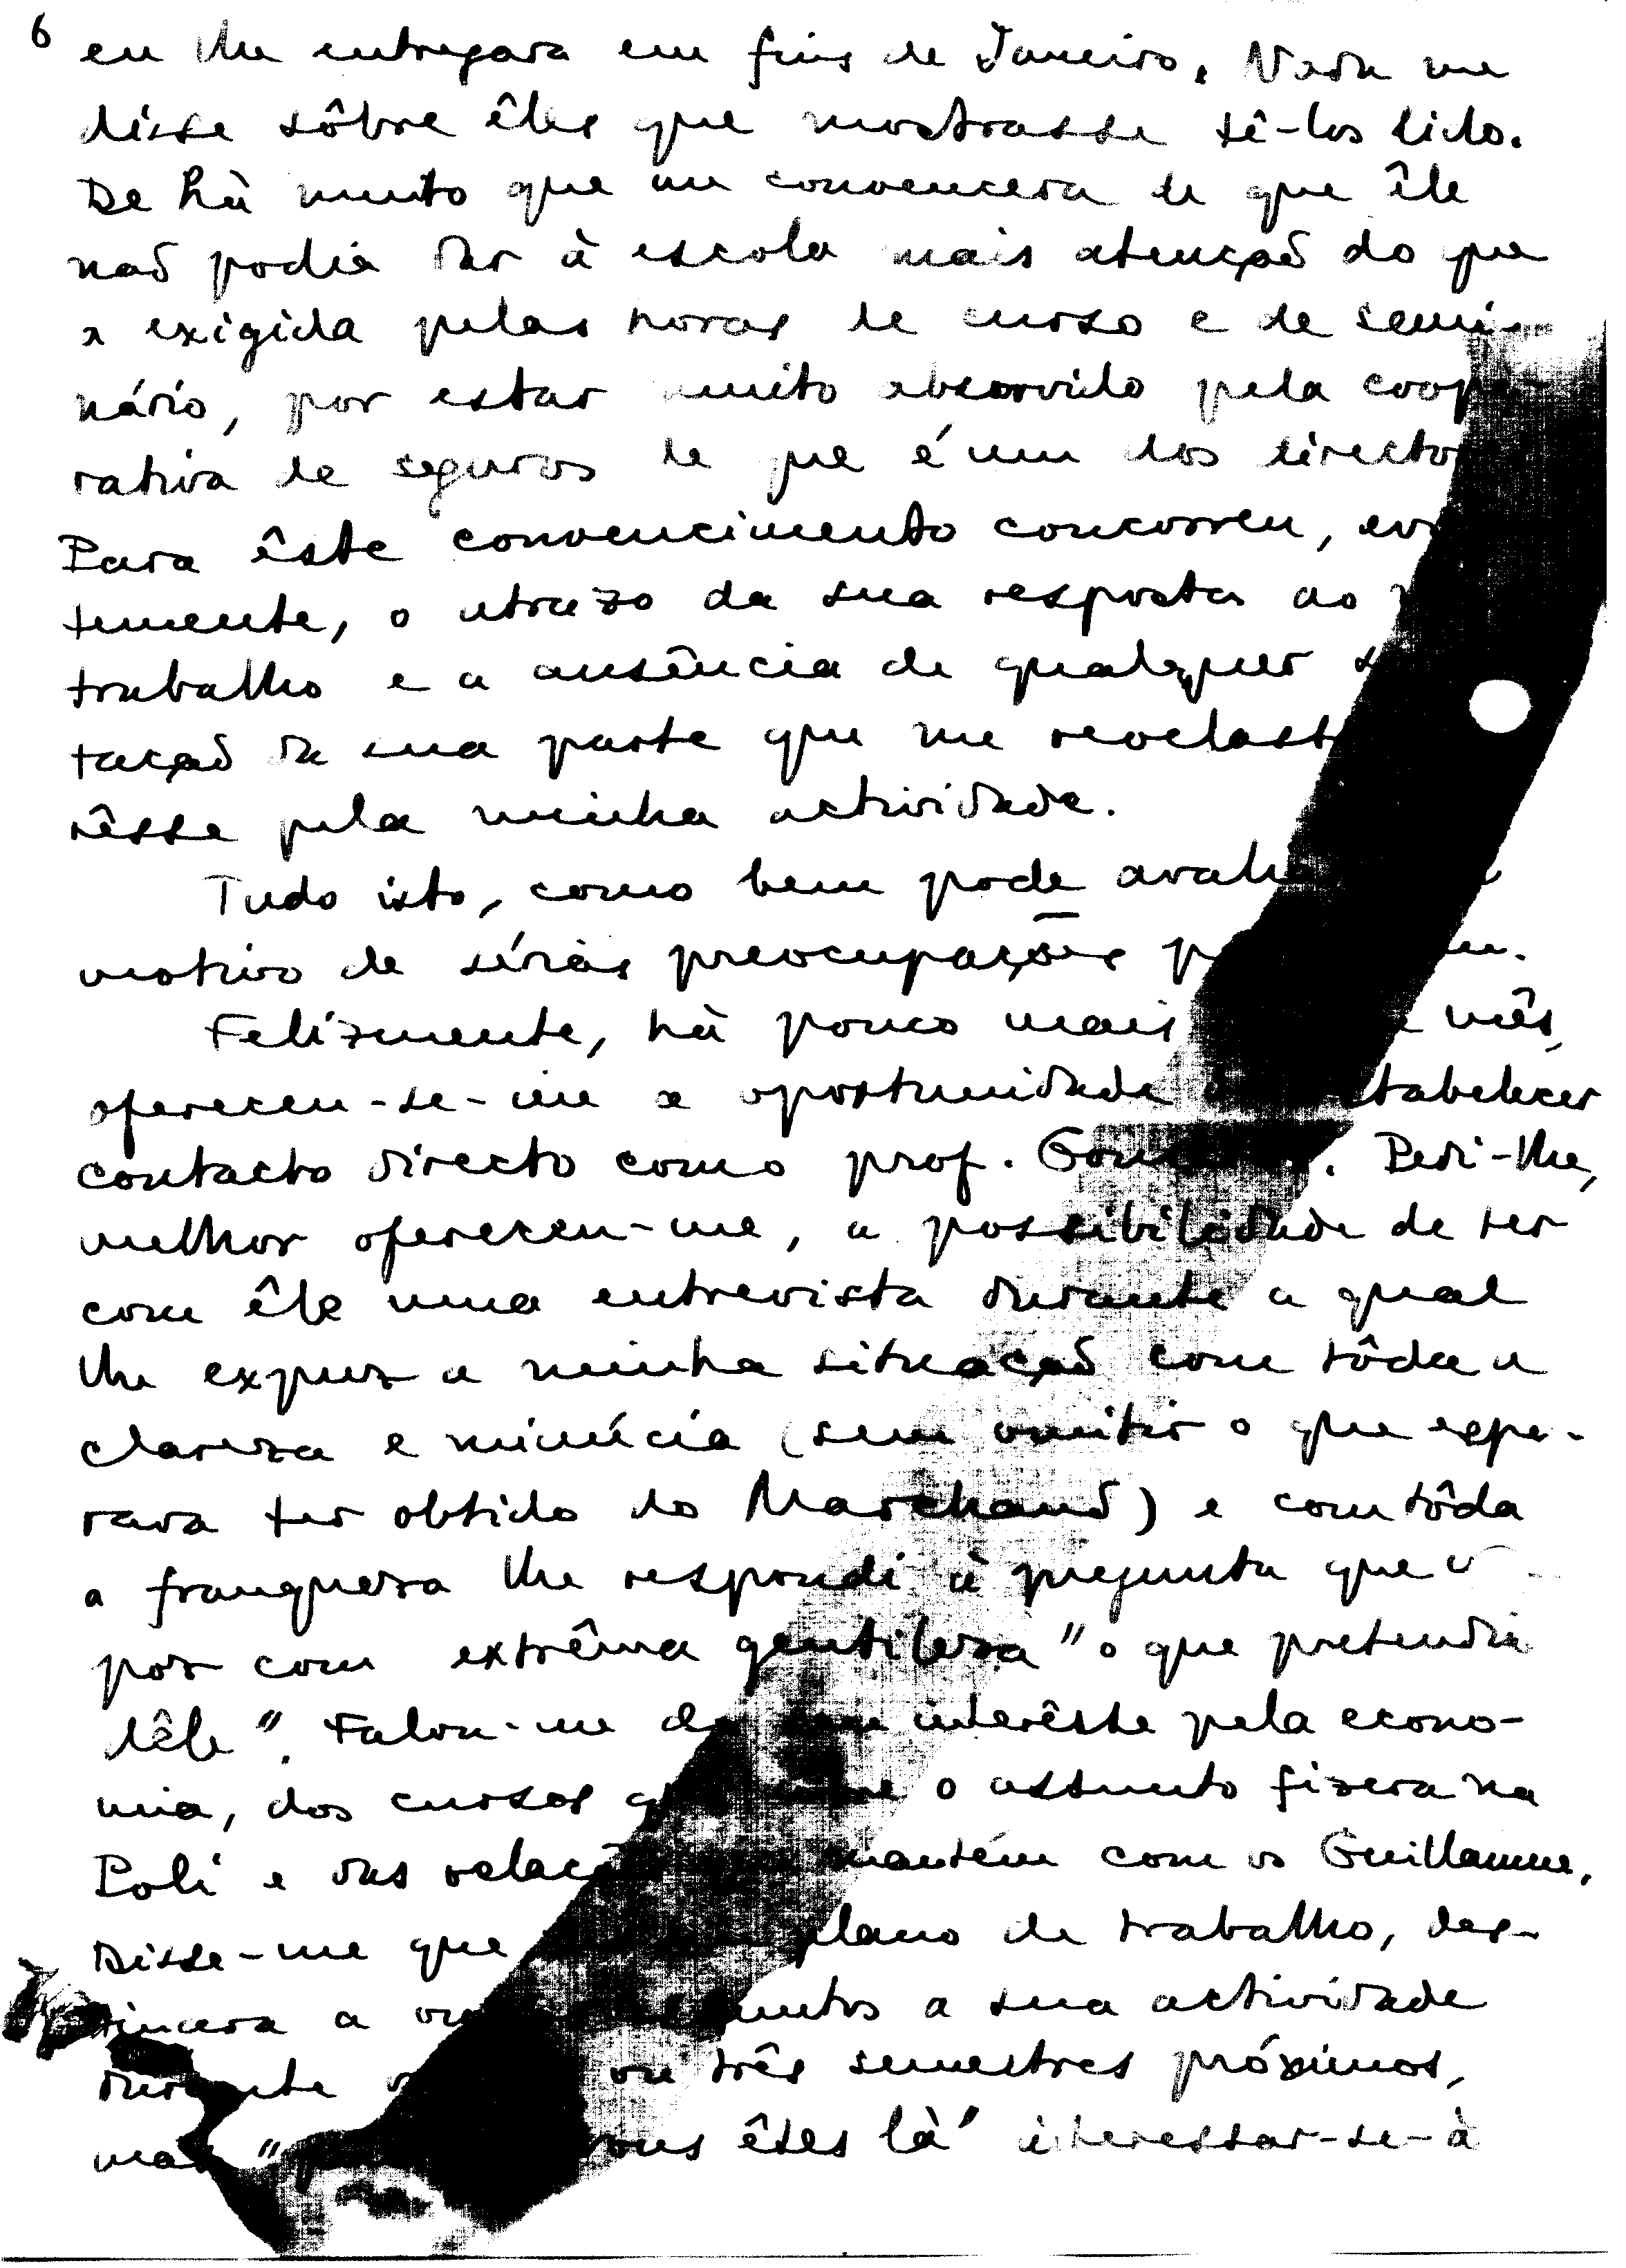 6
eu lhe entregara em fins de Janeiro. Nada me
disse sôbre êles que mostrasse tê-los lido.
De há muito que me convencera de que êle
não podia dar à escola mais atenção do que
a exigida pelas horas de curso e de semi-
nário, por estar muito absorvido pela coope-
rativa de seguros de que é um dos director
Para êste convencimento concorreu, evi
temente, o atrazo da sua resposta ao
trabalho e a ausência de qualquer
tação da sua parte que me revelasse
rêsse pela minha actividade.
Tudo isto, como bem pode avali
motivo de sérias preocupações p
Felizmente, há pouco mais mês,
ofereceu-se-me a oportunidade tabelecer
contacto directo com o prof. Gon . Pedi-lhe,
melhor ofereceu-me, a possibilidade de ter
com êle uma entrevista durante a qual
lhe expuz a minha situação com tôda a
clareza e minúcia (sem omitir o que espe-
rava ter obtido do Marchand) e com tôda
a franqueza lhe respondi à pregunta que
pôs com extrêma gentileza "o que pretendia
dêle". Falou-me do seu interêsse pela econo-
mia, dos cursos que sôbre o assunto fizera na
Poli e das relaç mantém com os Guillaume.
Disse-me que plano de trabalho, des-
tinara a ou untos a sua actividade
durante o ou três semestres próximos,
mas " vous êtes là" interessar-se-à